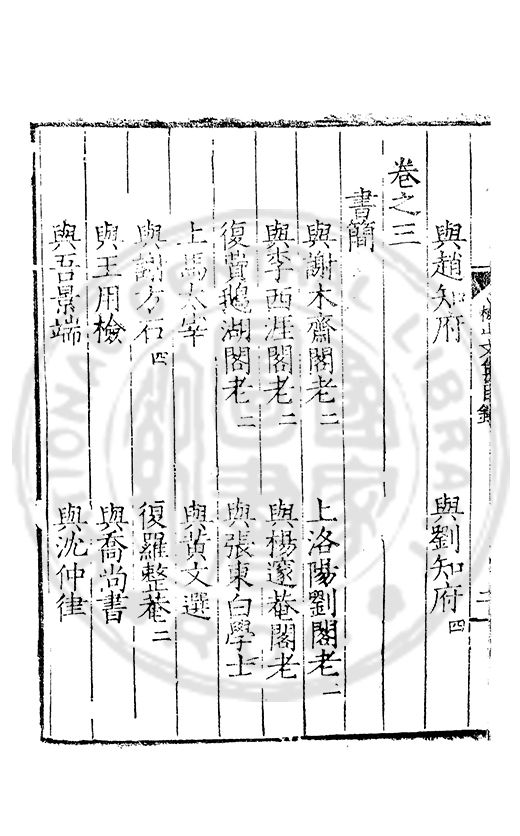 楓山文集目錄 二
與趙知府 與劉知府四
卷之三
書簡
與謝木齋閣老二 上洛陽劉閣老二
與李西涯閣老二 與楊邃菴閣老
復費鵝湖閣老二 與張東白學士
上馬太宰 與黃文選
與謝方石四 復羅整菴二
與王用檢 與喬尚書
與吾景端 與沈仲律